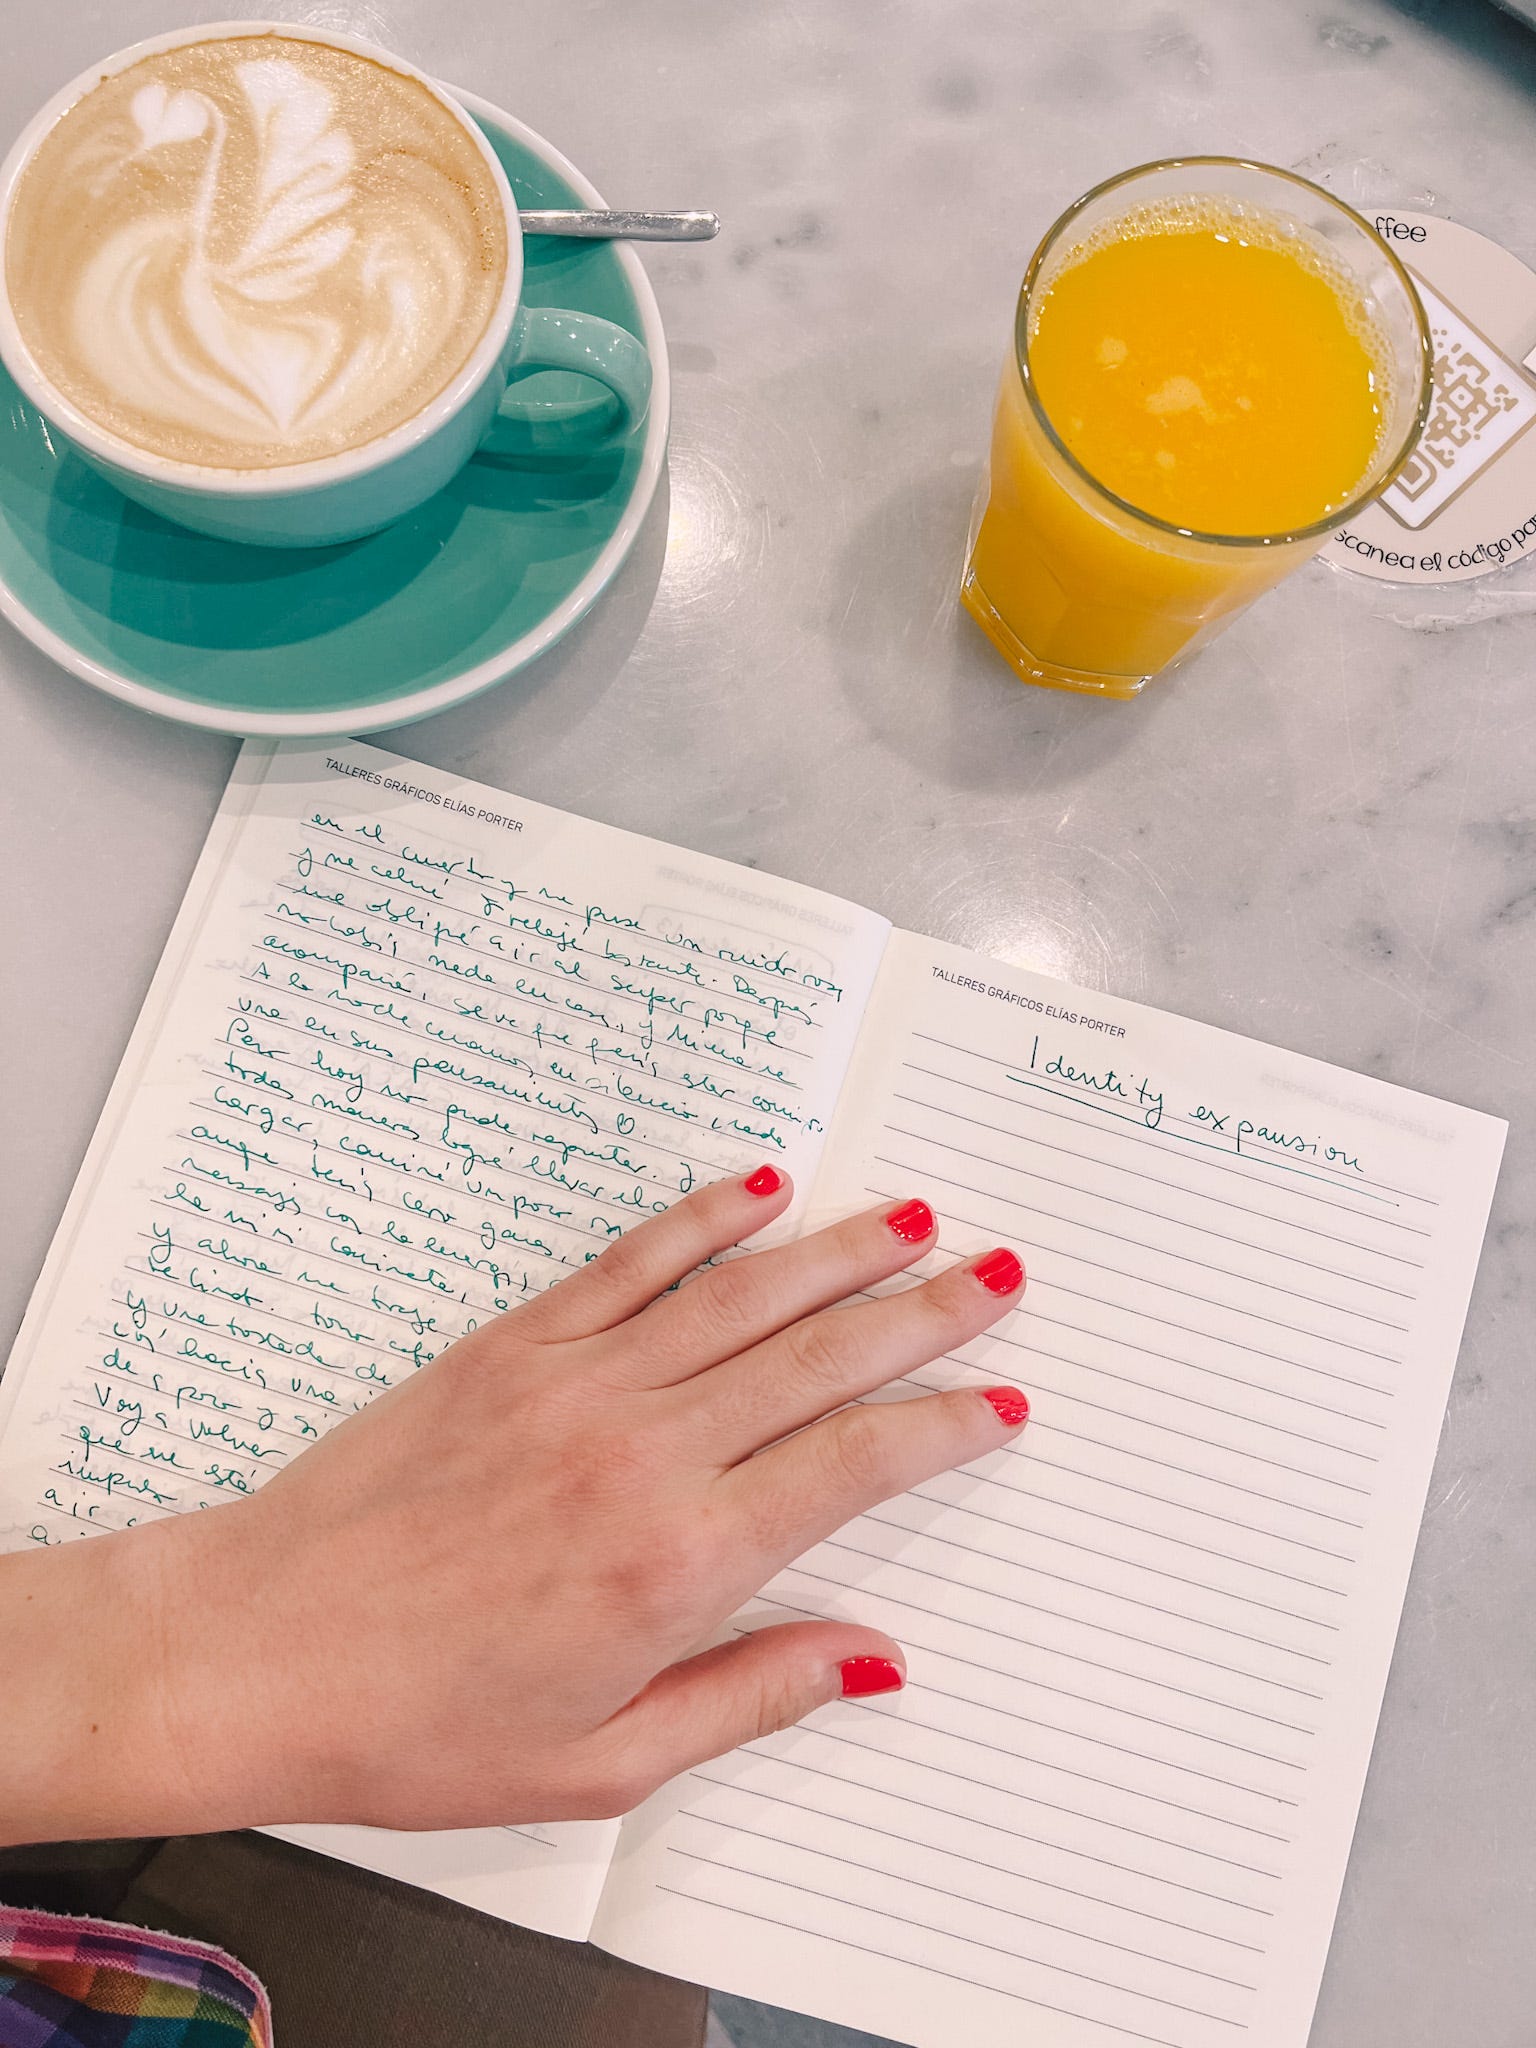 ffee
scanea el código par
TALLERES GRÁFICOS ELÍAS PORTER
en el cuarto y me puse un ruido rosa
y me calmé y relajé bastante. Después
me obligué a ir al super porque
no había nada en casa, y Mima me
acompañó, se ve que quería estar conmigo
A la noche cenamos en silencio, cada
una en sus pensamientos
Pero hoy no pude repuntar. Y
todas maneras logré llevar el a
cargar, caminé un poco
aunque tenía cero ganas,
mensajes con la energía
la mini caminata, a
y ahora me traje
re lindo. tomo café
y una tostada de
así hacía una
de a poco y si
Voy a volver
que me está
impulso
a ir
a
TALLERES GRÁFICOS ELÍAS PORTER
Identity expansion